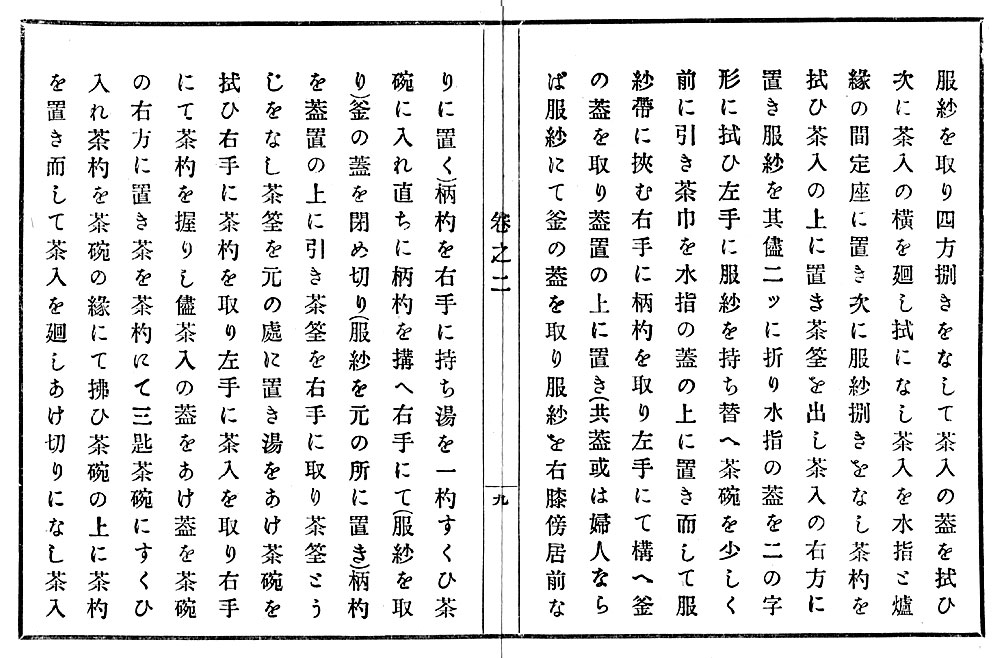 服紗を取り四方捌きをなして茶入の蓋を拭ひ
次に茶入の横を廻し拭になし茶入を水指と爐
緣の間定座に置き次に服紗捌きをなし茶杓を
拭ひ茶入の上に置き茶筌を出し茶入の右方に
置き服紗を其儘二ッに折り水指の蓋を二の字
形に拭ひ左手に服紗を持ち替へ茶碗を少しく
前に引き茶巾を水指の蓋の上に置き而して服
紗帶に挾む右手に柄杓を取り左手にて構へ釜
の蓋を取り蓋置の上に置き(共蓋或は婦人なら
ば服紗にて釜の蓋を取り服紗を右膝傍居前な
卷之二
九
りに置く)柄杓を右手に持ち湯を一杓すくひ茶
碗に入れ直ちに柄杓を搆へ右手にて(服紗を取
り)釜の蓋を閉め切り(服紗を元の所に置き)柄杓
を蓋置の上に引き茶筌を右手に取り茶筌とう
じをなし茶筌を元の處に置き湯をあけ茶碗を
拭ひ右手に茶杓を取り左手に茶入を取り右手
にて茶杓を握りし儘茶入の蓋をあけ蓋を茶碗
の右方に置き茶を茶杓にて三匙茶碗にすくひ
入れ茶杓を茶碗の緣にて拂ひ茶碗の上に茶杓
を置き而して茶入を廻しあけ切りになし茶入